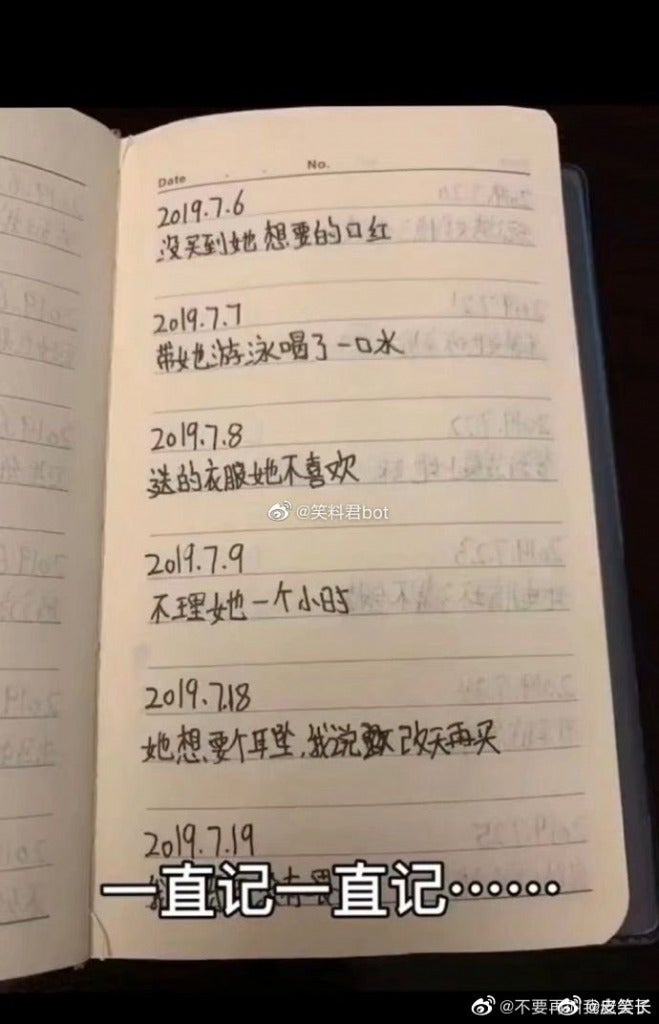 Date No.
2019.7.6
没买到她想要的口红
2019.7.7
带她游泳喝了一口水
2019.7.8
送的衣服她不喜欢
@笑料君bot
2019.7.9
不理她一个小时
2019.7.18
她想要个耳坠,我说 改天再买
2019.7.19
一直记一直记……
@皮笑长